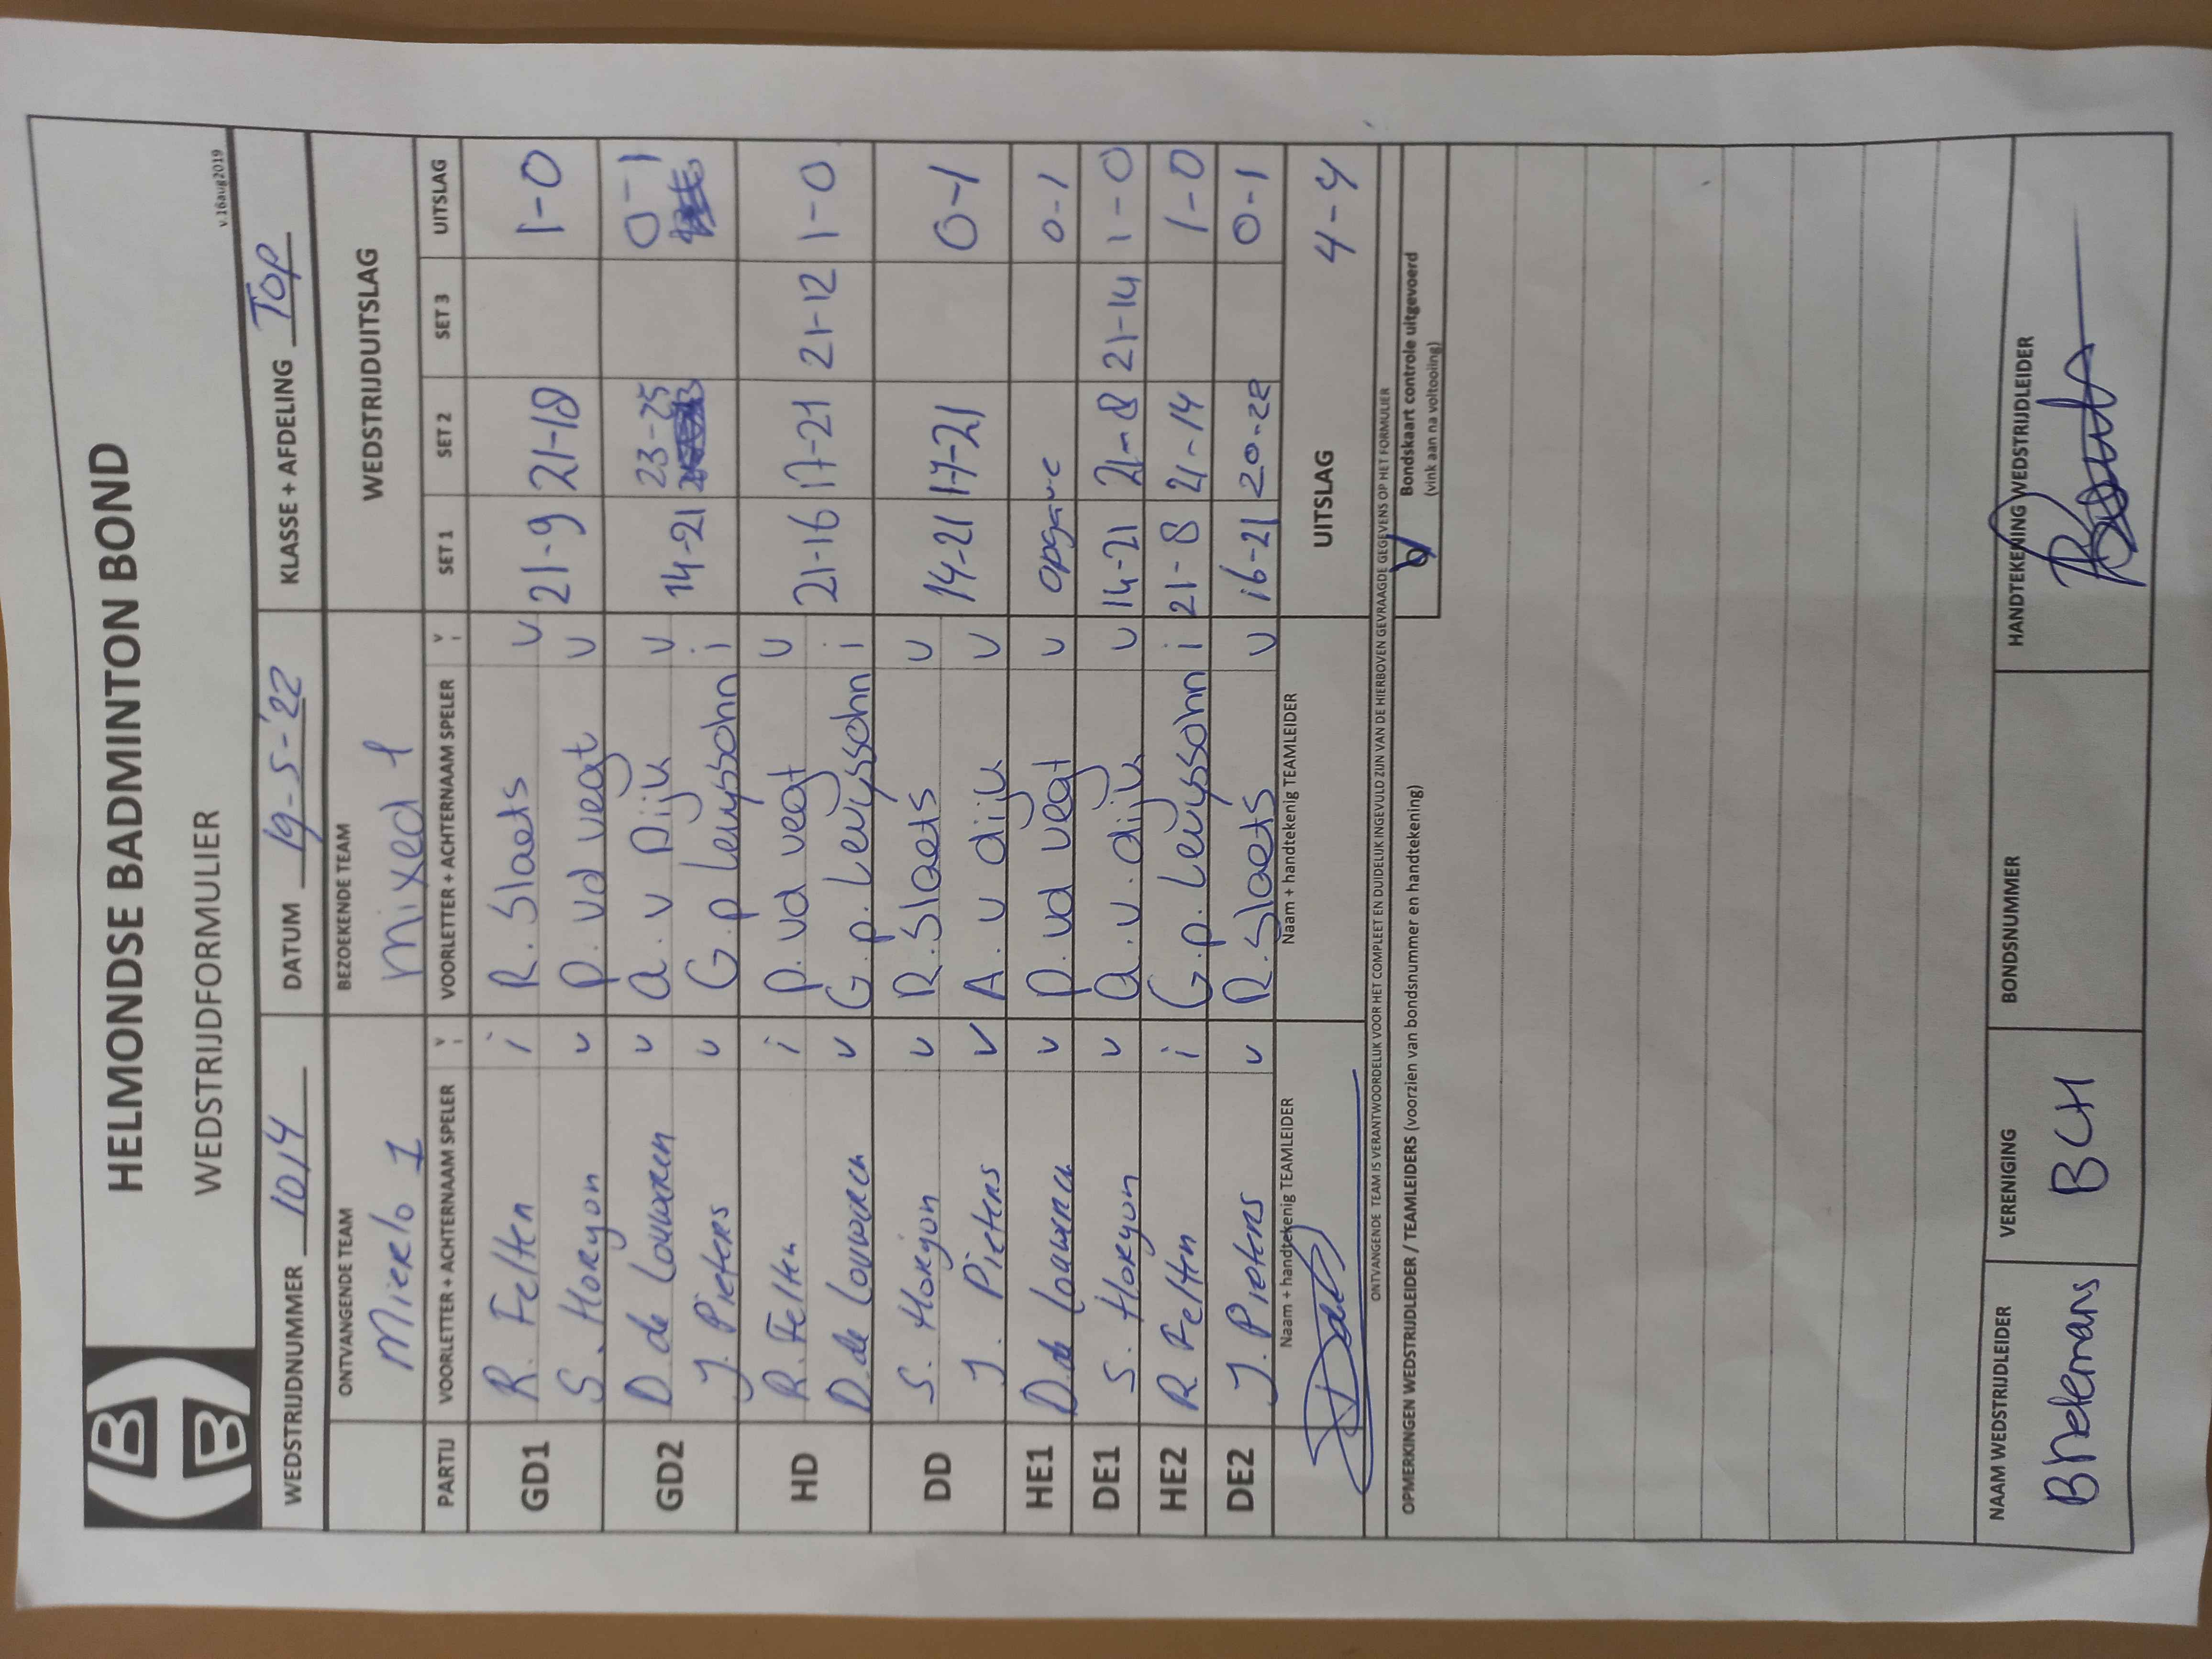 HELMONDSE BADMINTON BOND
WEDSTRIJDFORMULIER
v.16aug2019
WEDSTRIJDNUMMER 1014 DATUM 19-5-'22 KLASSE + AFDELING TOP
ONTVANGENDE TEAM BEZOEKENDE TEAM WEDSTRIJDUITSLAG
Mierlo 1 Mixed 1
PARTIJ VOORLETTER + ACHTERNAAM SPELER V i VOORLETTER + ACHTERNAAM SPELER V i SET 1 SET 2 SET 3 UITSLAG
GD1 R. Felten i R. Slaets v 21-9 21-18 1-0
S. Horyon v P. vd vegt v
GD2 D. de Louweren v a. v Dijk v 14-21 23-25 0-1
J. Pieters v G.P Leuyssohn i
HD R. Felten i P. vd vegt v 21-16 17-21 21-12 1-0
D. de Louweren v G.P. Leuyssohn i
DD S. Horyon v R. Slaets v 14-21 17-21 0-1
J. Pieters v A. v dijk v
HE1 D. de Louweren v P. vd vegt v opgave 0-1
DE1 S. Horyon v a. v. dijk v 14-21 21-8 21-14 1-0
HE2 R Felten i G.P. Leuyssohn i 21-8 21-14 1-0
DE2 J. Pieters v R. Slaets v 16-21 20-22 0-1
Naam + handtekenig TEAMLEIDER Naam + handtekenig TEAMLEIDER UITSLAG 4-4
ONTVANGENDE TEAM IS VERANTWOORDELIJK VOOR HET COMPLEET EN DUIDELIJK INGEVULD ZIJN VAN DE HIERBOVEN GEVRAAGDE GEGEVENS OP HET FORMULIER
OPMERKINGEN WEDSTRIJDLEIDER / TEAMLEIDERS (voorzien van bondsnummer en handtekening)
Bondskaart controle uitgevoerd
(vink aan na voltooiing)
NAAM WEDSTRIJDLEIDER VERENIGING BONDSNUMMER HANDTEKENING WEDSTRIJDLEIDER
Briekmans BCH